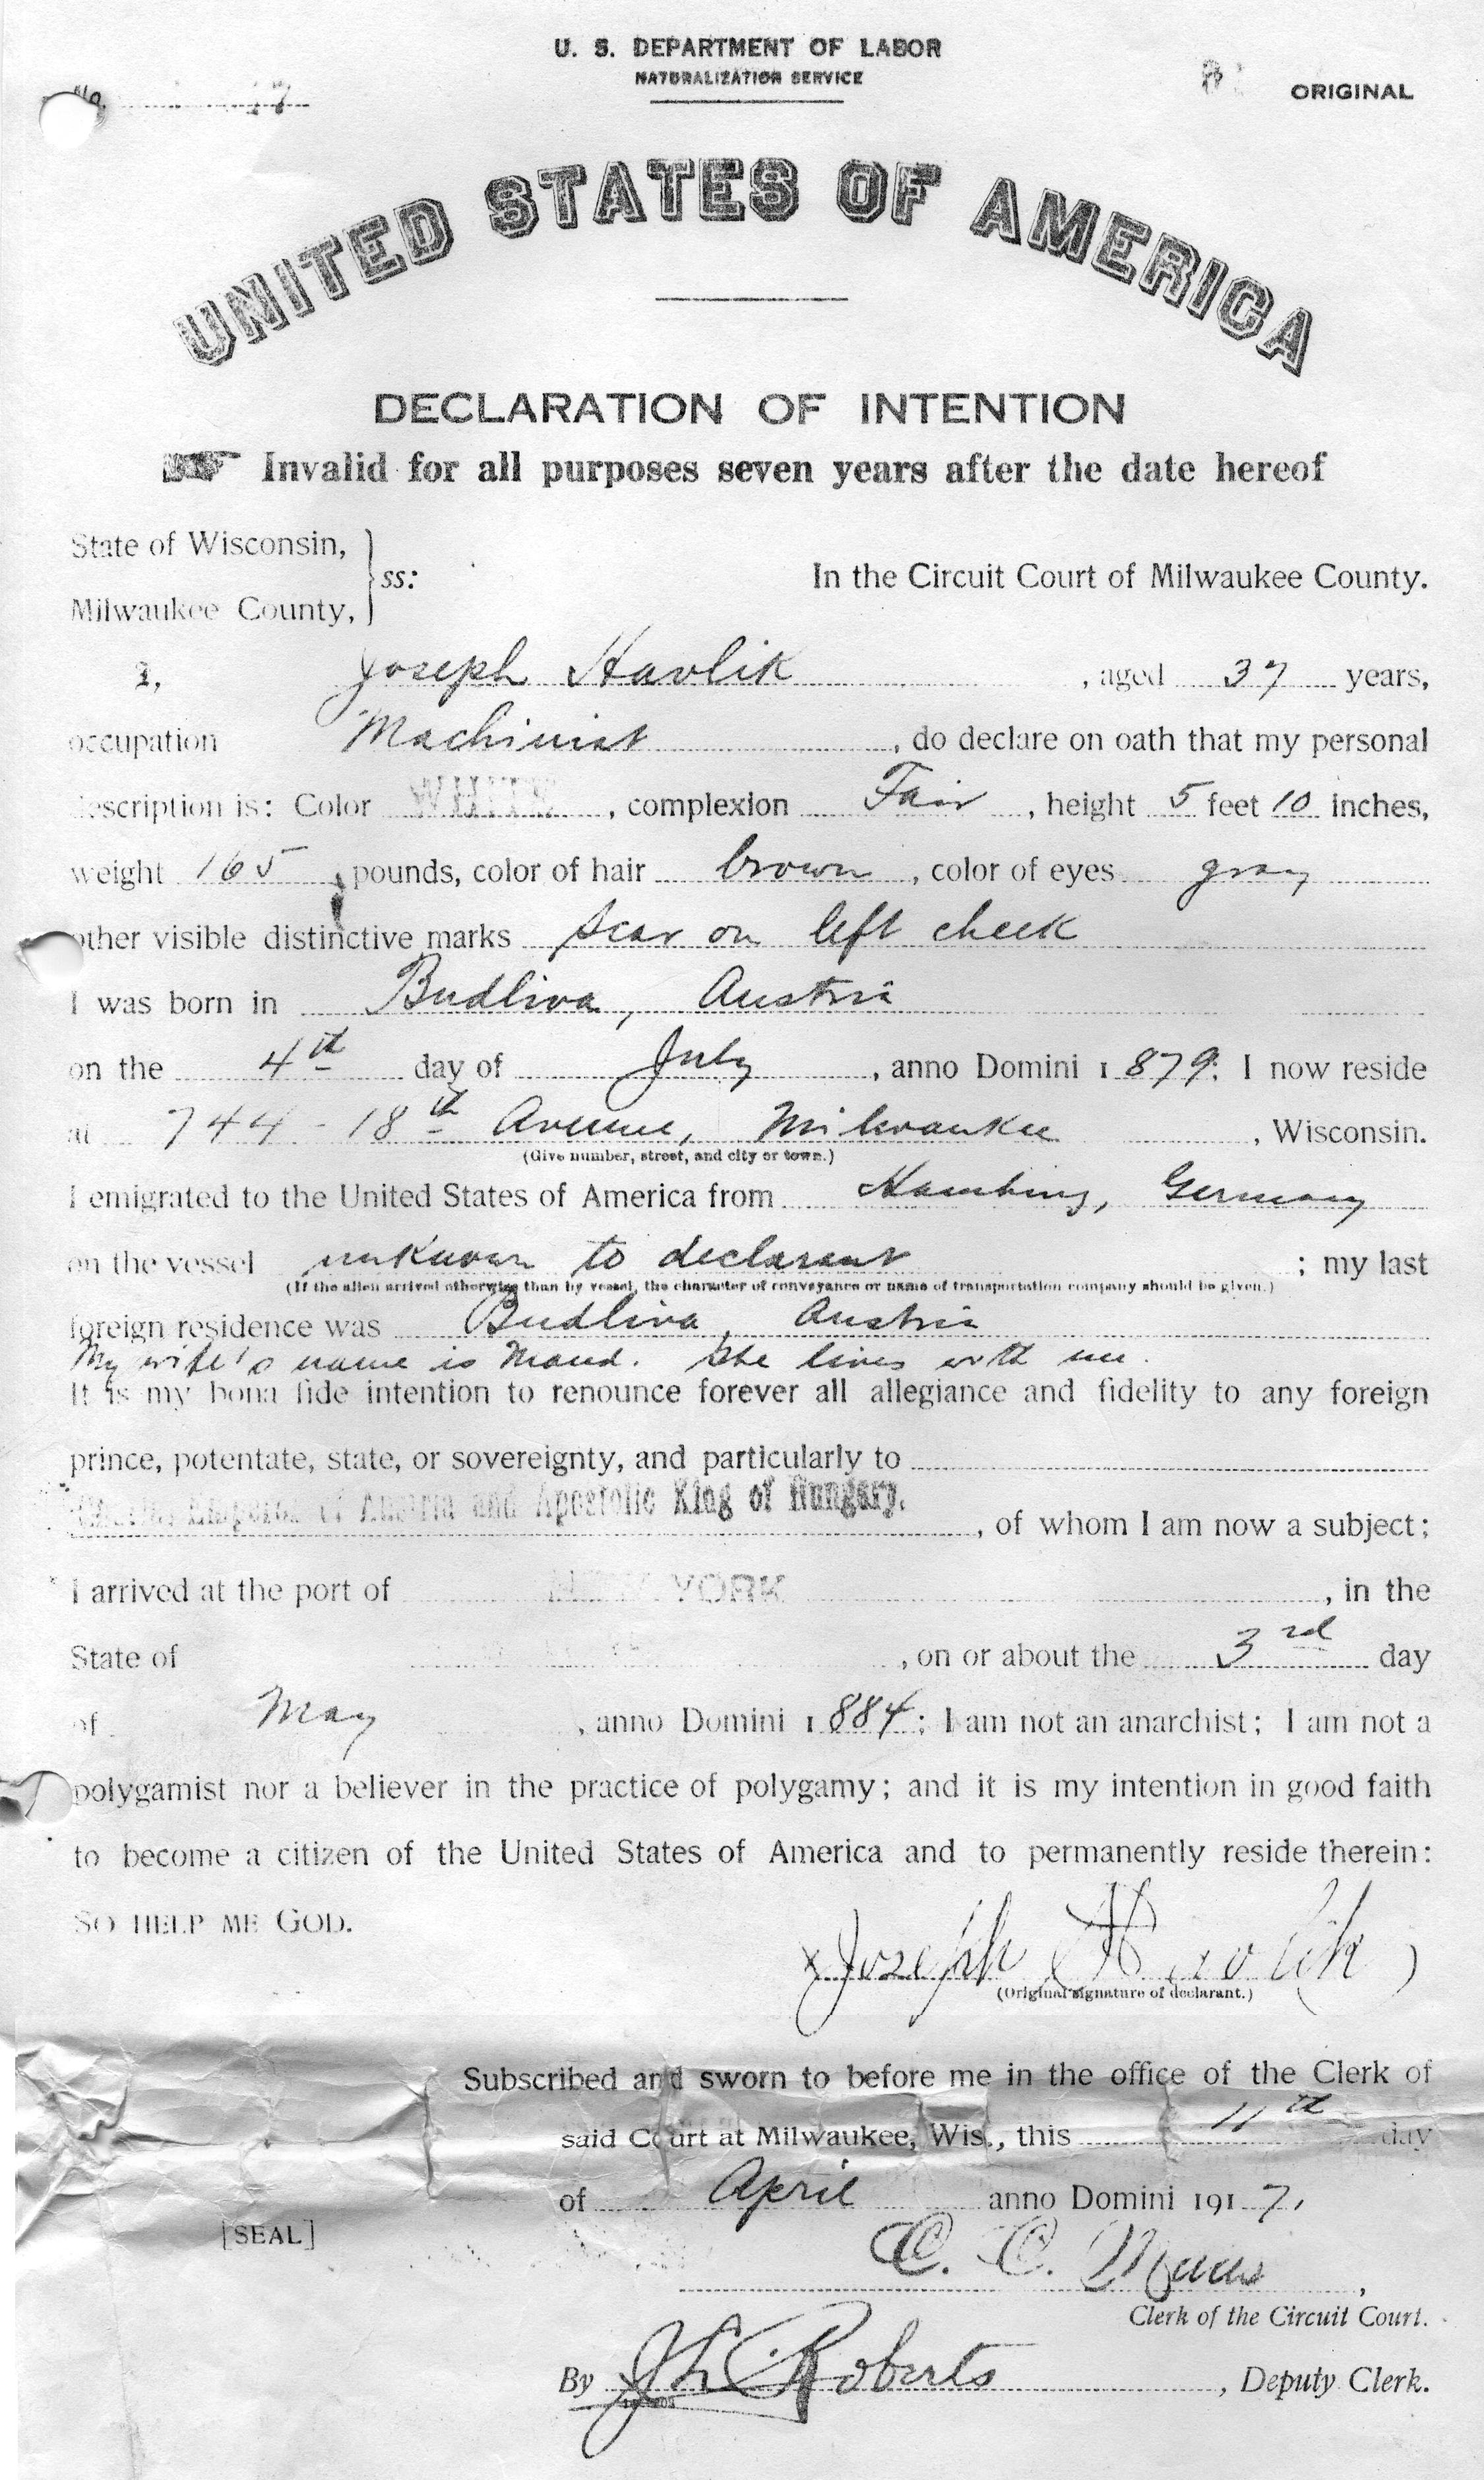 U. S. DEPARTMENT OF LABOR
NATURALIZATION SERVICE
No. 17
ORIGINAL
UNITED STATES OF AMERICA
DECLARATION OF INTENTION
Invalid for all purposes seven years after the date hereof
State of Wisconsin,
Milwaukee County,
ss:
In the Circuit Court of Milwaukee County.
I, Joseph Havlik, aged 37 years,
occupation Machinist, do declare on oath that my personal
description is: Color WHITE, complexion Fair, height 5 feet 10 inches,
weight 165 pounds, color of hair brown, color of eyes gray
other visible distinctive marks scar on left cheek
I was born in Budliva, Austria
on the 4th day of July, anno Domini 1879; I now reside
at 744 - 18th Avenue, Milwaukee, Wisconsin.
(Give number, street, and city or town.)
I emigrated to the United States of America from Hamburg, Germany
on the vessel unknown to declarant; my last
(If the alien arrived otherwise than by vessel, the character of conveyance or name of transportation company should be given.)
foreign residence was Budliva, Austria
My wife's name is Maud. She lives with me.
It is my bona fide intention to renounce forever all allegiance and fidelity to any foreign
prince, potentate, state, or sovereignty, and particularly to
Charles, Emperor of Austria and Apostolic King of Hungary.
, of whom I am now a subject;
I arrived at the port of NEW YORK, in the
State of , on or about the 3rd day
of May, anno Domini 1884; I am not an anarchist; I am not a
polygamist nor a believer in the practice of polygamy; and it is my intention in good faith
to become a citizen of the United States of America and to permanently reside therein:
SO HELP ME GOD.
x Joseph Havlik
(Original signature of declarant.)
Subscribed and sworn to before me in the office of the Clerk of
said Court at Milwaukee, Wis., this 11th day
of April anno Domini 1917,
[SEAL]
C. C. Maas,
Clerk of the Circuit Court.
By Roberts, Deputy Clerk.